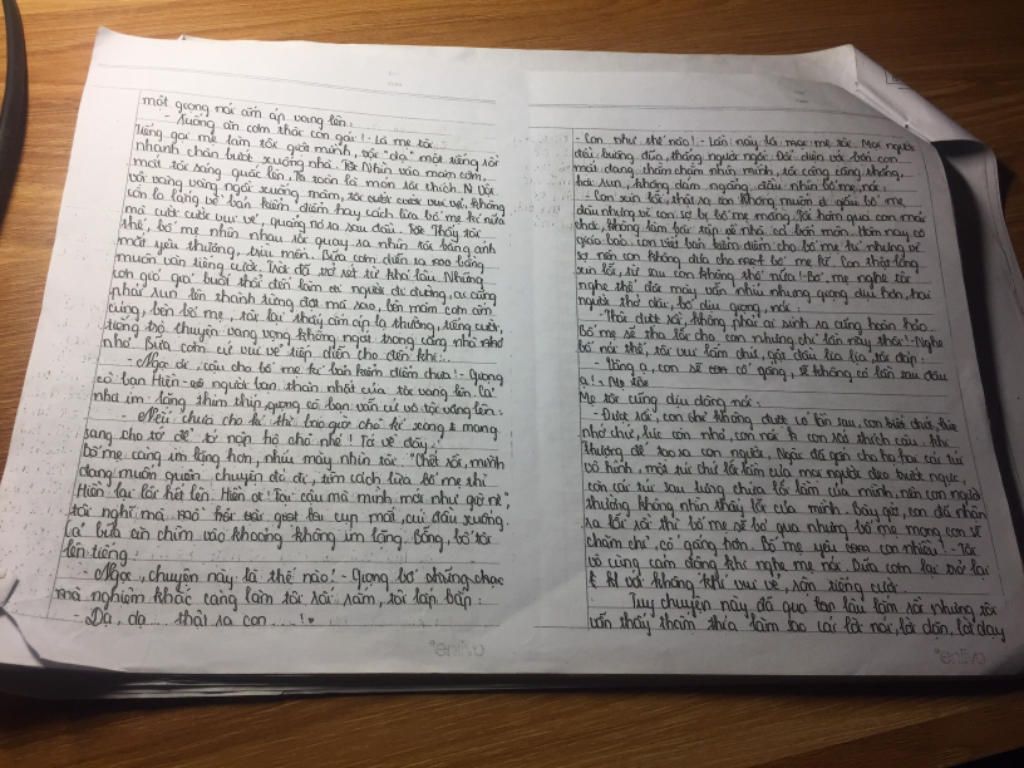 một giọng nói ấm áp vang lên:
- Xuống ăn cơm thôi con gái! - Là mẹ tôi.
Tiếng gọi mẹ làm tôi giật mình, vội "dạ" một tiếng rồi
nhanh chân bước xuống nhà. Nhìn vào mâm cơm,
mắt tôi sáng quắc lên, Toàn là món tôi thích. Vội
vội vàng vàng ngồi xuống mâm, tôi cười cười vui vẻ, không
còn lo lắng về bản kiểm điểm hay cách lừa bố mẹ kí nữa
mà cười cười vui vẻ, quẳng nó ra sau đầu. Thấy tôi
thế, bố mẹ nhìn nhau rồi quay ra nhìn tôi bằng ánh
mắt yêu thương, trìu mến. Bữa cơm diễn ra bằng
muôn vàn tiếng cười. Trời đã trở rét từ khá lâu. Những
cơn gió giá buốt thổi đến làm ai người đi đường, ai cũng
phải run lên thành từng đợt mà sao, bên mâm cơm ấm
cúng, bên bố mẹ, tôi lại thấy ấm áp lạ thường, tiếng cười,
tiếng trò chuyện vang vọng không ngớt trong căn nhà nhỏ
nhỏ. Bữa cơm cứ vui vẻ tiếp diễn cho đến khi:..
- Ngọc ơi, cậu cho bố mẹ kí bản kiểm điểm chưa! - Giọng
cô bạn Hiền - người bạn thân nhất của tôi vang lên. Cả
nhà im lặng thin thít, giọng cô bạn vẫn cứ vô tội vang lên:
- Nếu chưa cho kí thì bao giờ cho kí xong mang
sang cho tớ để tớ nộp hộ cho nhé! Tớ về đây!
Bố mẹ càng im lặng hơn, nhíu mày nhìn tôi. "Chết rồi, mình
đang muốn quên chuyện đó đi, tìm cách lừa bố mẹ thì
Hiền lại lôi hết lên. Hiền ơi! Tại cậu mà mình mới như giờ nè",
tôi nghĩ mà cụp mắt, cúi đầu xuống.
Cả bữa ăn chìm vào khoảng không im lặng. Bỗng, bố tôi
lên tiếng:
- Ngọc, chuyện này là thế nào! - Giọng bố chững chạc
mà nghiêm khắc càng làm tôi rối rắm, tôi lắp bắp:
- Dạ, dạ... thật ra con....!
- Con như thế nào! - Lần này là mẹ tôi. Mọi người
đều buông đũa, thẳng người ngồi. Đối diện với bốn con
mắt đang chằm chằm nhìn mình, tôi càng căng thẳng,
hơi run, không dám ngẩng đầu nhìn bố mẹ, nói:
- Con xin lỗi, thật ra con không muốn đi giấu bố mẹ
đâu nhưng vì con sợ bị bố mẹ mắng. Tối hôm qua con mải
chơi, không làm bài tập về nhà cả bốn môn. Hôm nay cô
giáo bảo con viết bản kiểm điểm cho bố mẹ kí nhưng vì
sợ nên con không đưa cho bố mẹ kí. Con thật lòng
xin lỗi, từ sau con không thế nữa! - Bố, mẹ nghe tôi
nghe thế đôi mày vẫn nhíu nhưng giọng dịu hơn, hai
người thở dài, bố dịu giọng, nói:
- Thôi được rồi, không phải ai sinh ra cũng hoàn hảo.
Bố mẹ sẽ tha lỗi cho con nhưng chỉ lần này thôi! - Nghe
bố nói thế, tôi vui lắm chứ, gật đầu lia lịa, tôi đáp:
- Vâng ạ, con sẽ cố gắng, sẽ không có lần sau đâu
ạ!
Mẹ tôi cũng dịu dàng nói:
- Được rồi, con chứ không được có lần sau, con biết chứ,
nhớ chứ, lúc còn nhỏ, con nói con rất thích câu: khi
thượng đế tạo ra con người, Ngài đã gắn cho họ hai cái túi
vô hình, một túi chứ lỗi lầm của mọi người đeo trước ngực,
còn cái túi sau lưng chứa lỗi lầm của mình, nên con người
thường không nhìn thấy lỗi của mình. Bây giờ, con đã nhận
ra lỗi rồi thì bố mẹ sẽ bỏ qua nhưng bố mẹ mong con sẽ
chăm chỉ, cố gắng hơn. Bố mẹ yêu con nhiều! - Tôi
vô cùng cảm động khi nghe mẹ nói. Bữa cơm lại trở lại
với không khí vui vẻ, rộn tiếng cười.
Tuy chuyện này đã qua lâu lắm rồi nhưng tôi
vẫn thấy thấm thía làm sao cái lời nói, lời dặn, lời dạy
enlivo
enlivo